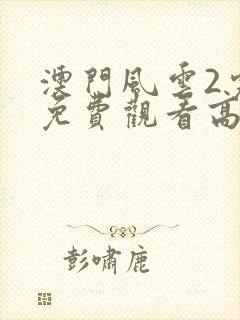 澳門風雲2
免費觀看高
彭嘯鹿